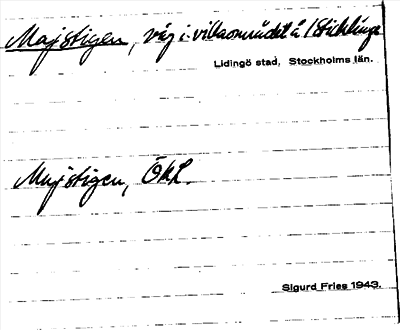 Majstigen, väg i villaområdet å Sticklinge
Lidingö stad, Stockholms län.
Majstigen, ÖKL.
Sigurd Fries 1943.